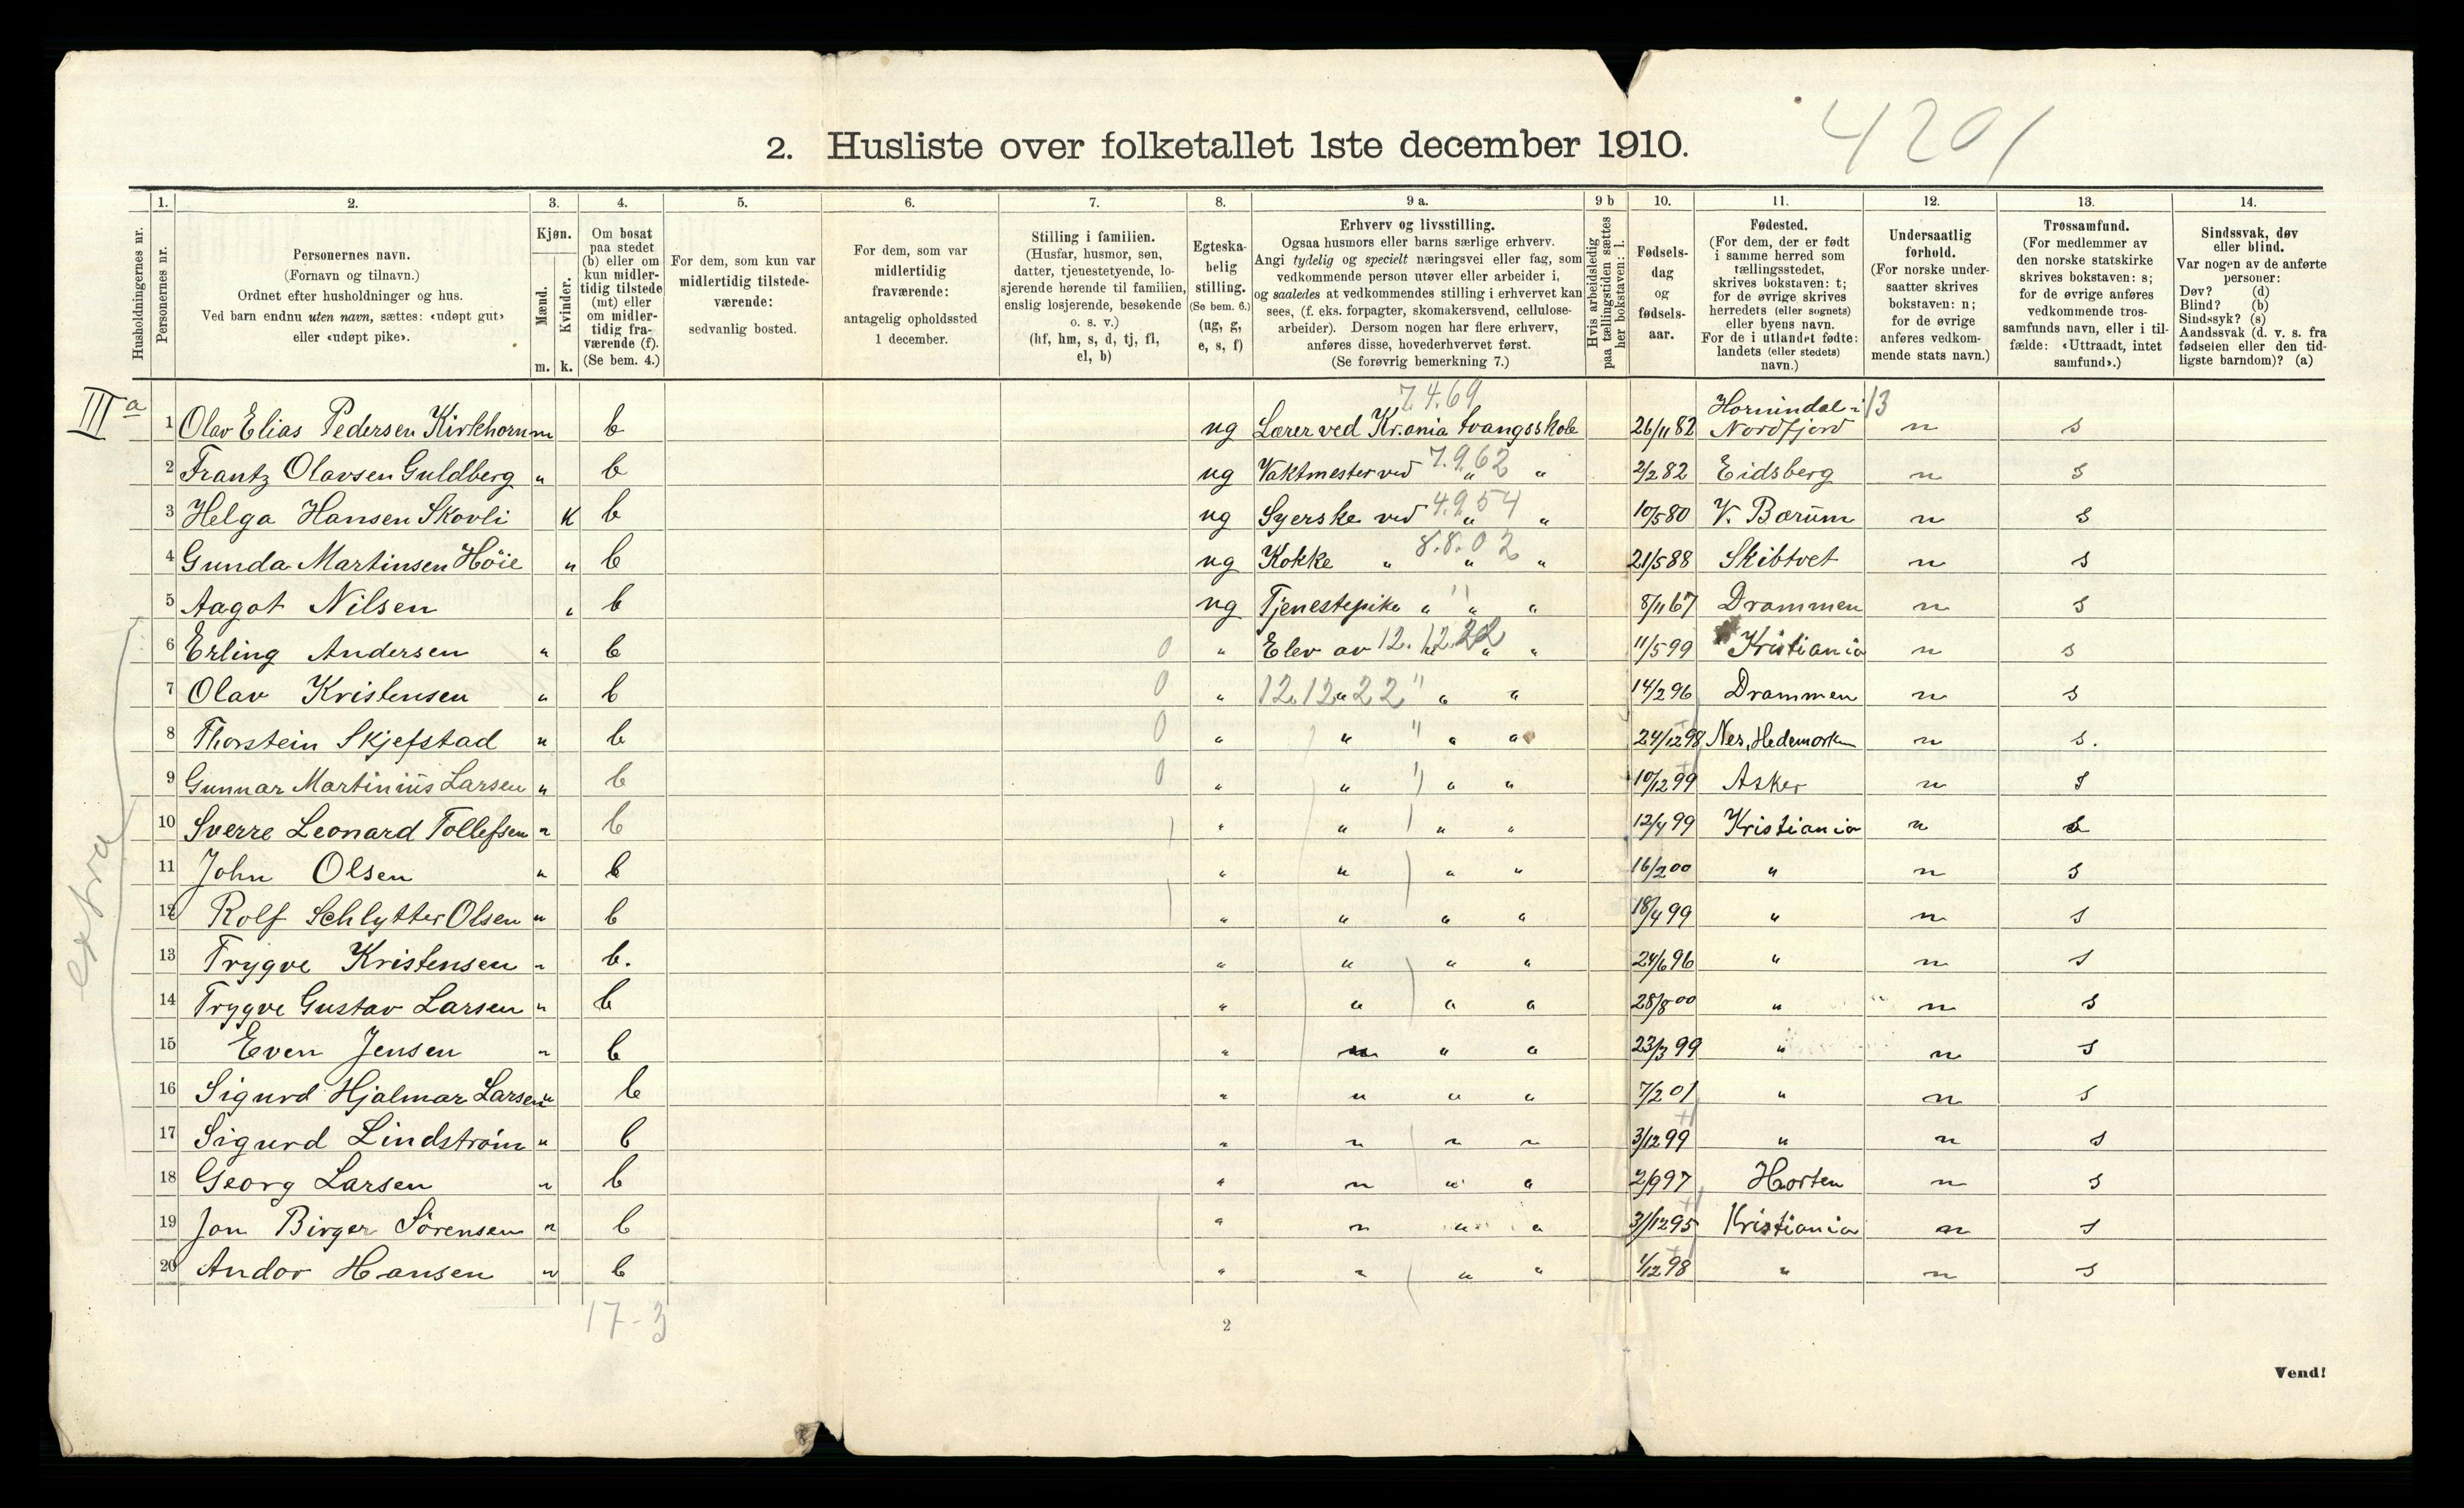 2. Husliste over folketallet 1ste december 1910.
4201
Husholdningernes nr.
1. Personernes nr.
2. Personernes navn.
(Fornavn og tilnavn.)
Ordnet efter husholdninger og hus.
Ved barn endnu uten navn, sættes: «udøpt gut»
eller «udøpt pike».
3. Kjøn.
Mænd. m.
Kvinder. k.
4. Om bosat
paa stedet
(b) eller om
kun midler-
tidig tilstede
(mt) eller
om midler-
tidig fra-
værende (f).
(Se bem. 4.)
5. For dem, som kun var
midlertidig tilstede-
værende:
sedvanlig bosted.
6. For dem, som var
midlertidig
fraværende:
antagelig opholdssted
1 december.
7. Stilling i familien.
(Husfar, husmor, søn,
datter, tjenestetyende, lo-
sjerende hørende til familien,
enslig losjerende, besøkende
o. s. v.)
(hf, hm, s, d, tj, fl,
el, b)
8. Egteska-
belig
stilling.
(Se bem. 6.)
(ug, g,
e, s, f)
9 a. Erhverv og livsstilling.
Ogsaa husmors eller barns særlige erhverv.
Angi tydelig og specielt næringsvei eller fag, som
vedkommende person utøver eller arbeider i,
og saaledes at vedkommendes stilling i erhvervet kan
sees, (f. eks. forpagter, skomakersvend, cellulose-
arbeider). Dersom nogen har flere erhverv,
anføres disse, hovederhvervet først.
(Se forøvrig bemerkning 7.)
9 b Hvis arbeidsledig
paa tællingstiden sættes
her bokstaven: l.
10. Fødsels-
dag
og
fødsels-
aar.
11. Fødested.
(For dem, der er født
i samme herred som
tællingsstedet,
skrives bokstaven: t;
for de øvrige skrives
herredets (eller sognets)
eller byens navn.
For de i utlandet fødte:
landets (eller stedets)
navn.)
12. Undersaatlig
forhold.
(For norske under-
saatter skrives
bokstaven: n;
for de øvrige
anføres vedkom-
mende stats navn.)
13. Trossamfund.
(For medlemmer av
den norske statskirke
skrives bokstaven: s;
for de øvrige anføres
vedkommende tros-
samfunds navn, eller i til-
fælde: «Uttraadt, intet
samfund».)
14. Sindssvak, døv
eller blind.
Var nogen av de anførte
personer:
Døv? (d)
Blind? (b)
Sindssyk? (s)
Aandssvak (d. v. s. fra
fødselen eller den tid-
ligste barndom)? (a)
7.4.69
Hornindal i 13
IIIa 1 Olav Elias Pedersen Kirkhorn m b ug Lærer ved Kr.ania tvangsskole 26/11 82 Nordfjord n s
2 Frantz Olavsen Guldberg " b ug Vaktmester ved 7.9.62 " " 2/2 82 Eidsberg n s
3 Helga Hansen Skovli K b ug Syerske ved 4.9.54 " " 10/5 80 V. Bærum n s
4 Gunda Martinsen Höie " b ug Kokke " 8.8.02 " " 21/5 88 Skibtvet n s
5 Aagot Nilsen " b ug Tjenestepike " " " " 8/11 67 Drammen n s
6 Erling Andersen " b 0 " Elev av 12.12.22 " " " 11/5 99 Kristiania n s
7 Olav Kristensen " b 0 " 12.12.22 " " " " 14/2 96 Drammen n s
8 Thorstein Skjefstad " b 0 " " " " " 24/12 98 Nes, Hedemarken n s.
9 Gunnar Martinius Larsen " b 0 " " " " " 10/12 99 Asker n s
10 Sverre Leonard Tollefsen " b " " " " 12/4 99 Kristiania n s
11 John Olsen " b " " " " 16/2 00 " n s
12 Rolf Schlytter Olsen " b " " " " 18/4 99 " n s
13 Trygve Kristensen " b. " " " " 24/6 96 " n s
14 Trygve Gustav Larsen " b " " " " 28/8 00 " n s
15 Even Jensen " b " " " " 23/3 99 " n s
16 Sigurd Hjalmar Larsen " b " " " " 7/2 01 " n s
17 Sigurd Lindström " b " " " " 3/12 99 " n s
18 Georg Larsen " b " " " " 2/9 97 Horten n s
19 Jon Birger Sörensen " b " " " " 31/12 95 Kristiania n s
20 Andor Hansen " b " " " " 1/12 98 " n s
extra
17-3
2
Vend!